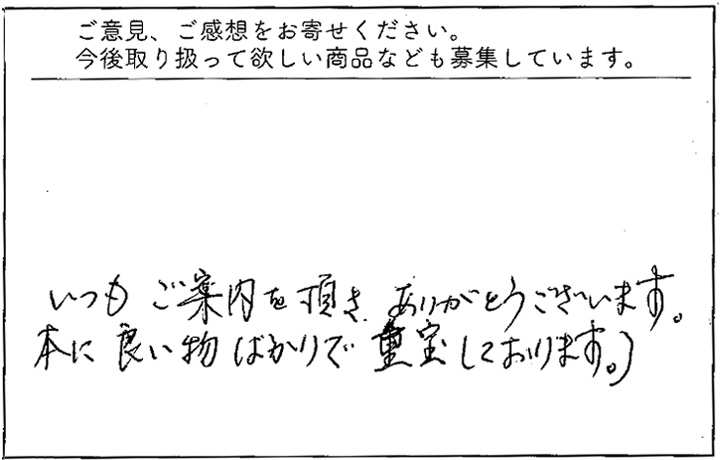 ご意見、ご感想をお寄せください。
今後取り扱って欲しい商品なども募集しています。
いつもご案内を頂き、ありがとうございます。
本に良い物ばかりで重宝しております。)